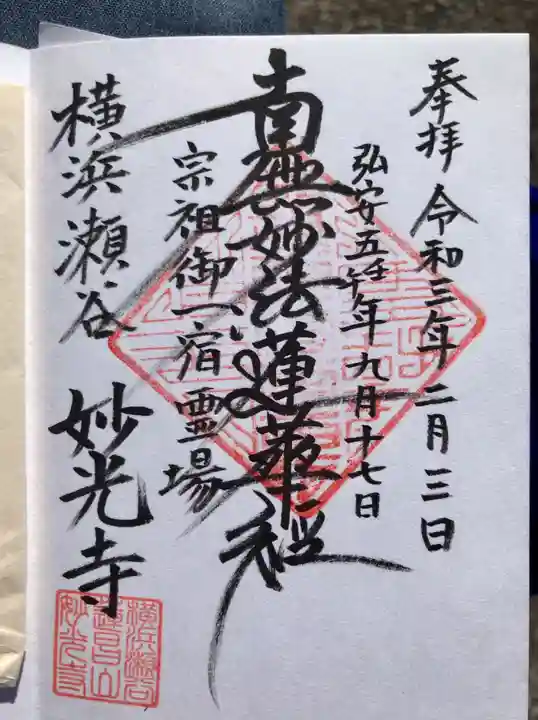 奉拝 令和三年二月三日
弘安五壬午年九月十七日
南無妙法蓮華経
宗祖御一宿霊場
横浜瀬谷 妙光寺
横浜瀬谷
蓮昌山
妙光寺